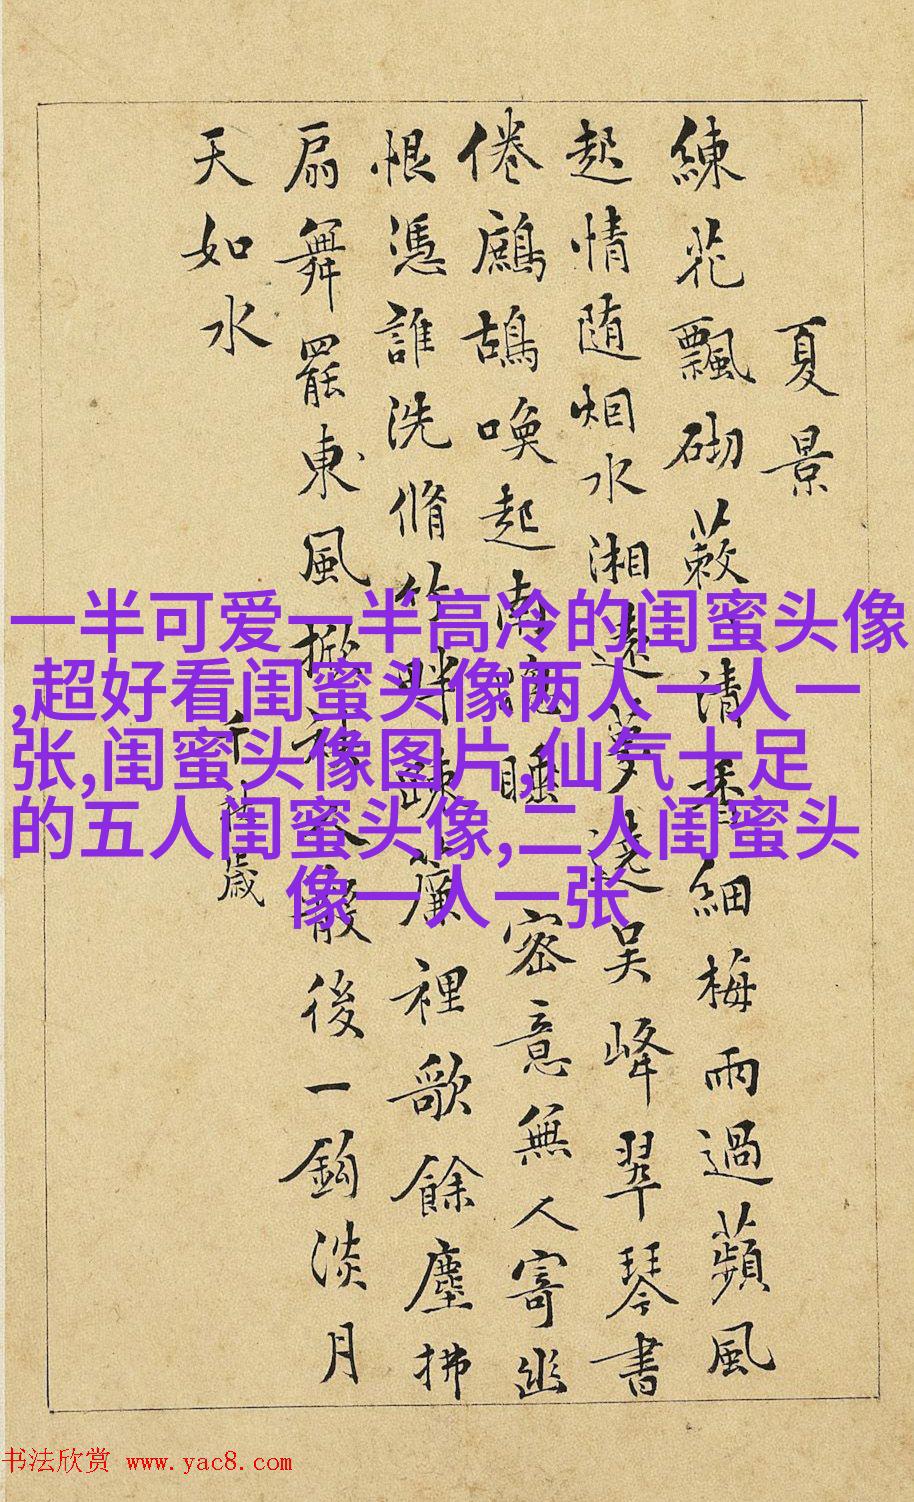 夏景
練花飄砌蔌清香細梅雨過蘋風
起情随烟水湘遠夢遶吳峰翠琴書
倦鷓鴣喚起南窻睡密意無人寄幽
恨憑誰洗脩竹畔疎簾裡歌餘塵拂
扇舞罷東風掀袂人散後一鉤淡月
天如水
千秋歲
一半可爱一半高冷的闺蜜头像
,超好看闺蜜头像两人一人一
张,闺蜜头像图片,仙气十足
的五人闺蜜头像,二人闺蜜头
像一人一张
书法欣赏 www.yac8.com